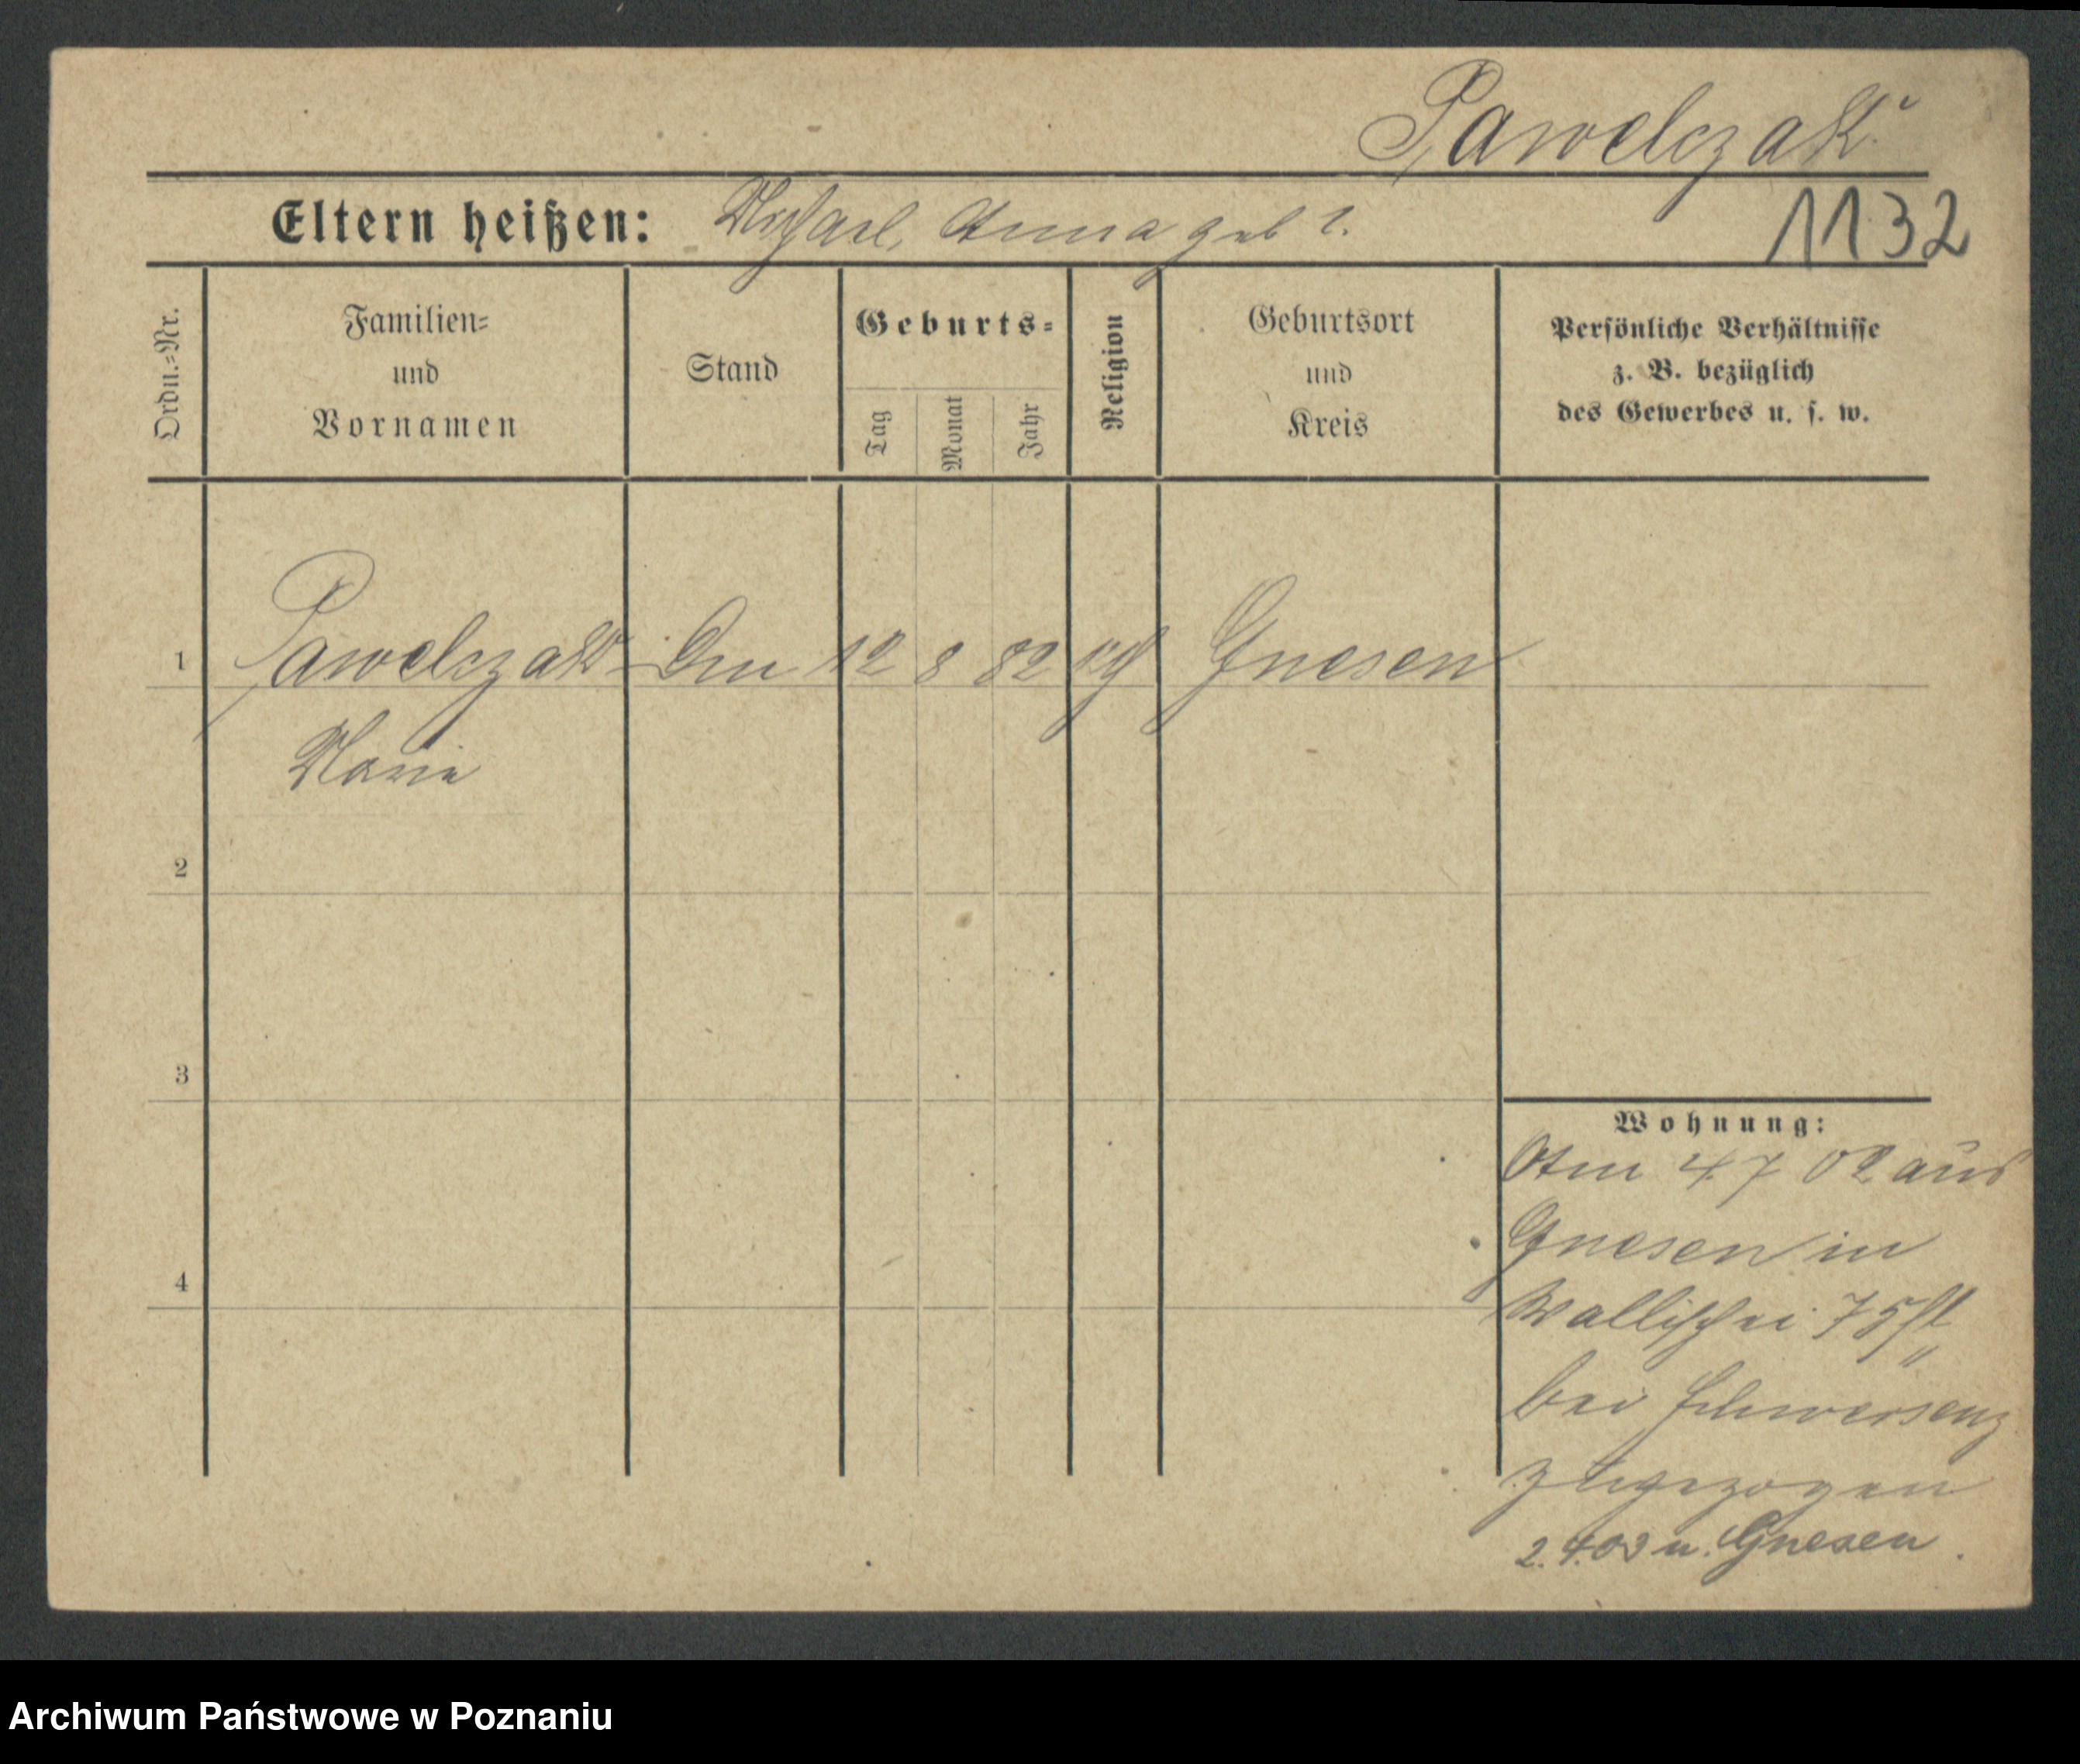 Pawelczak
Eltern heißen: Michael, Anna geb ?.
1132
Ordn.=Nr.
Familien=
und
Vornamen
Stand
Geburts=
Tag
Monat
Jahr
Religion
Geburtsort
und
Kreis
Persönliche Verhältnisse
z. B. bezüglich
des Gewerbes u. s. w.
1 Pawelczak 12 8 82 Gnesen
Marie
2
3
4
Wohnung:
Am 4.7 02 aus
Gnesen in
Wallischei 75
bei Schwersenz
zugezogen
2.4.03 n. Gnesen
Archiwum Państwowe w Poznaniu